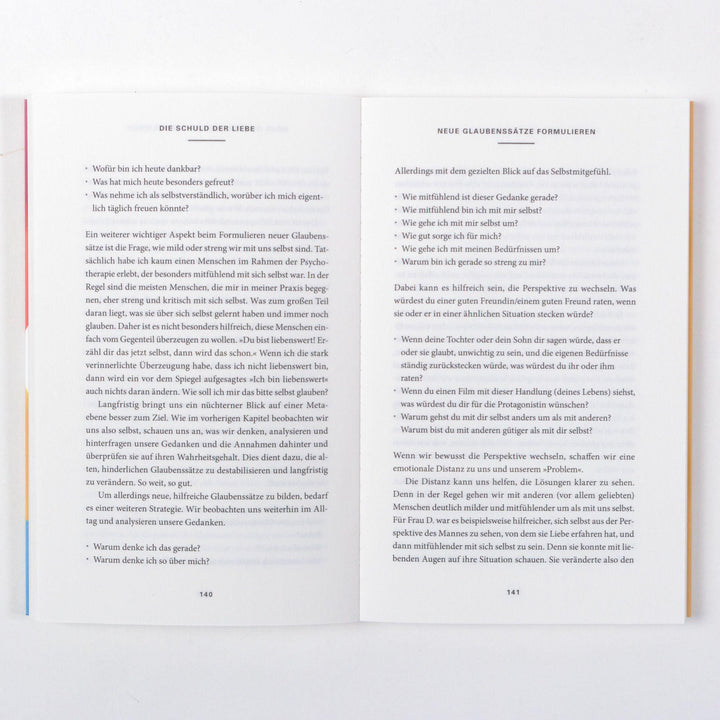 DIE SCHULD DER LIEBE
• Wofür bin ich heute dankbar?
• Was hat mich heute besonders gefreut?
• Was nehme ich als selbstverständlich, worüber ich mich eigent-
lich täglich freuen könnte?
Ein weiterer wichtiger Aspekt beim Formulieren neuer Glaubens-
sätze ist die Frage, wie mild oder streng wir mit uns selbst sind. Tat-
sächlich habe ich kaum einen Menschen im Rahmen der Psycho-
therapie erlebt, der besonders mitfühlend mit sich selbst war. In der
Regel sind die meisten Menschen, die mir in meiner Praxis begeg-
nen, eher streng und kritisch mit sich selbst. Was zum großen Teil
daran liegt, was sie über sich selbst gelernt haben und immer noch
glauben. Daher ist es nicht besonders hilfreich, diese Menschen ein-
fach vom Gegenteil überzeugen zu wollen. »Du bist liebenswert! Er-
zähl dir das jetzt selbst, dann wird das schon.« Wenn ich die stark
verinnerlichte Überzeugung habe, dass ich nicht liebenswert bin,
dann wird ein vor dem Spiegel aufgesagtes »Ich bin liebenswert«
auch nichts daran ändern. Wie soll ich mir das bitte selbst glauben?
Langfristig bringt uns ein nüchterner Blick auf einer Meta-
ebene besser zum Ziel. Wie im vorherigen Kapitel beobachten wir
uns also selbst, schauen uns an, was wir denken, analysieren und
hinterfragen unsere Gedanken und die Annahmen dahinter und
überprüfen sie auf ihren Wahrheitsgehalt. Dies dient dazu, die al-
ten, hinderlichen Glaubenssätze zu destabilisieren und langfristig
zu verändern. So weit, so gut.
Um allerdings neue, hilfreiche Glaubenssätze zu bilden, bedarf
es einer weiteren Strategie. Wir beobachten uns weiterhin im All-
tag und analysieren unsere Gedanken.
• Warum denke ich das gerade?
• Warum denke ich so über mich?
140
NEUE GLAUBENSSÄTZE FORMULIEREN
Allerdings mit dem gezielten Blick auf das Selbstmitgefühl.
• Wie mitfühlend ist dieser Gedanke gerade?
• Wie mitfühlend bin ich mit mir selbst?
• Wie gehe ich mit mir selbst um?
• Wie gut sorge ich für mich?
• Wie gehe ich mit meinen Bedürfnissen um?
• Warum bin ich gerade so streng zu mir?
Dabei kann es hilfreich sein, die Perspektive zu wechseln. Was
würdest du einer guten Freundin/einem guten Freund raten, wenn
sie oder er in einer ähnlichen Situation stecken würde?
• Wenn deine Tochter oder dein Sohn dir sagen würde, dass er
oder sie glaubt, unwichtig zu sein, und die eigenen Bedürfnisse
ständig zurückstecken würde, was würdest du ihr oder ihm
raten?
• Wenn du einen Film mit dieser Handlung (deines Lebens) siehst,
was würdest du dir für die Protagonistin wünschen?
• Warum gehst du mit dir selbst anders um als mit anderen?
Warum bist du mit anderen gütiger als mit dir selbst?
Wenn wir bewusst die Perspektive wechseln, schaffen wir eine
emotionale Distanz zu uns und unserem »Problem«.
Die Distanz kann uns helfen, die Lösungen klarer zu sehen.
Denn in der Regel gehen wir mit anderen (vor allem geliebten)
Menschen deutlich milder und mitfühlender um als mit uns selbst.
Für Frau D. war es beispielsweise hilfreicher, sich selbst aus der Per-
spektive des Mannes zu sehen, von dem sie Liebe erfahren hat, und
dann mitfühlender mit sich selbst zu sein. Denn sie konnte mit lie-
benden Augen auf ihre Situation schauen. Sie veränderte also den
141